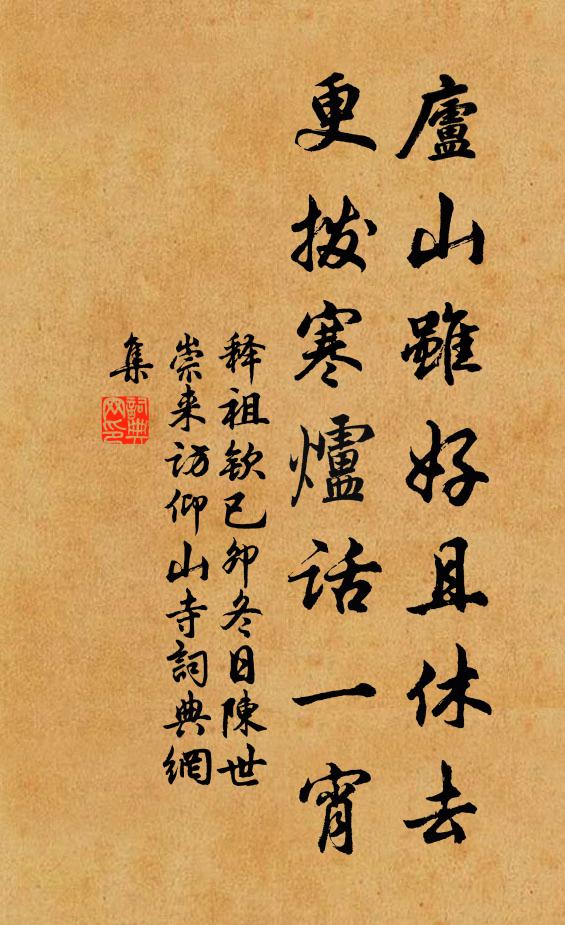 廬山雖好且休去
更撥寒爐話一宵
释祖欽己卯冬日陳世
崇来访仰山寺詞典網
集
詞典
网印